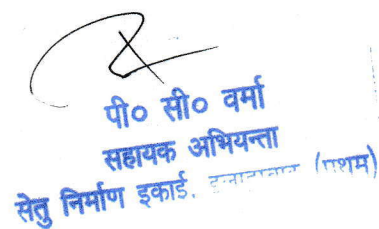 पी० सी० वर्मा
सहायक अभियन्ता
सेतु निर्माण इकाई, (प्रथम)